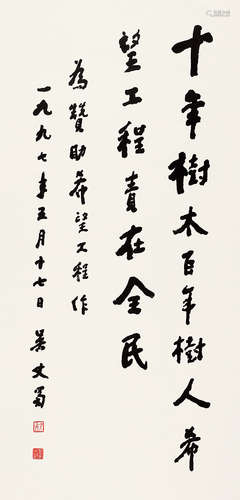 十年樹木百年樹人希
望工程責在全民
為贊助希望工程作
一九九七年五月十七日 吳丈蜀